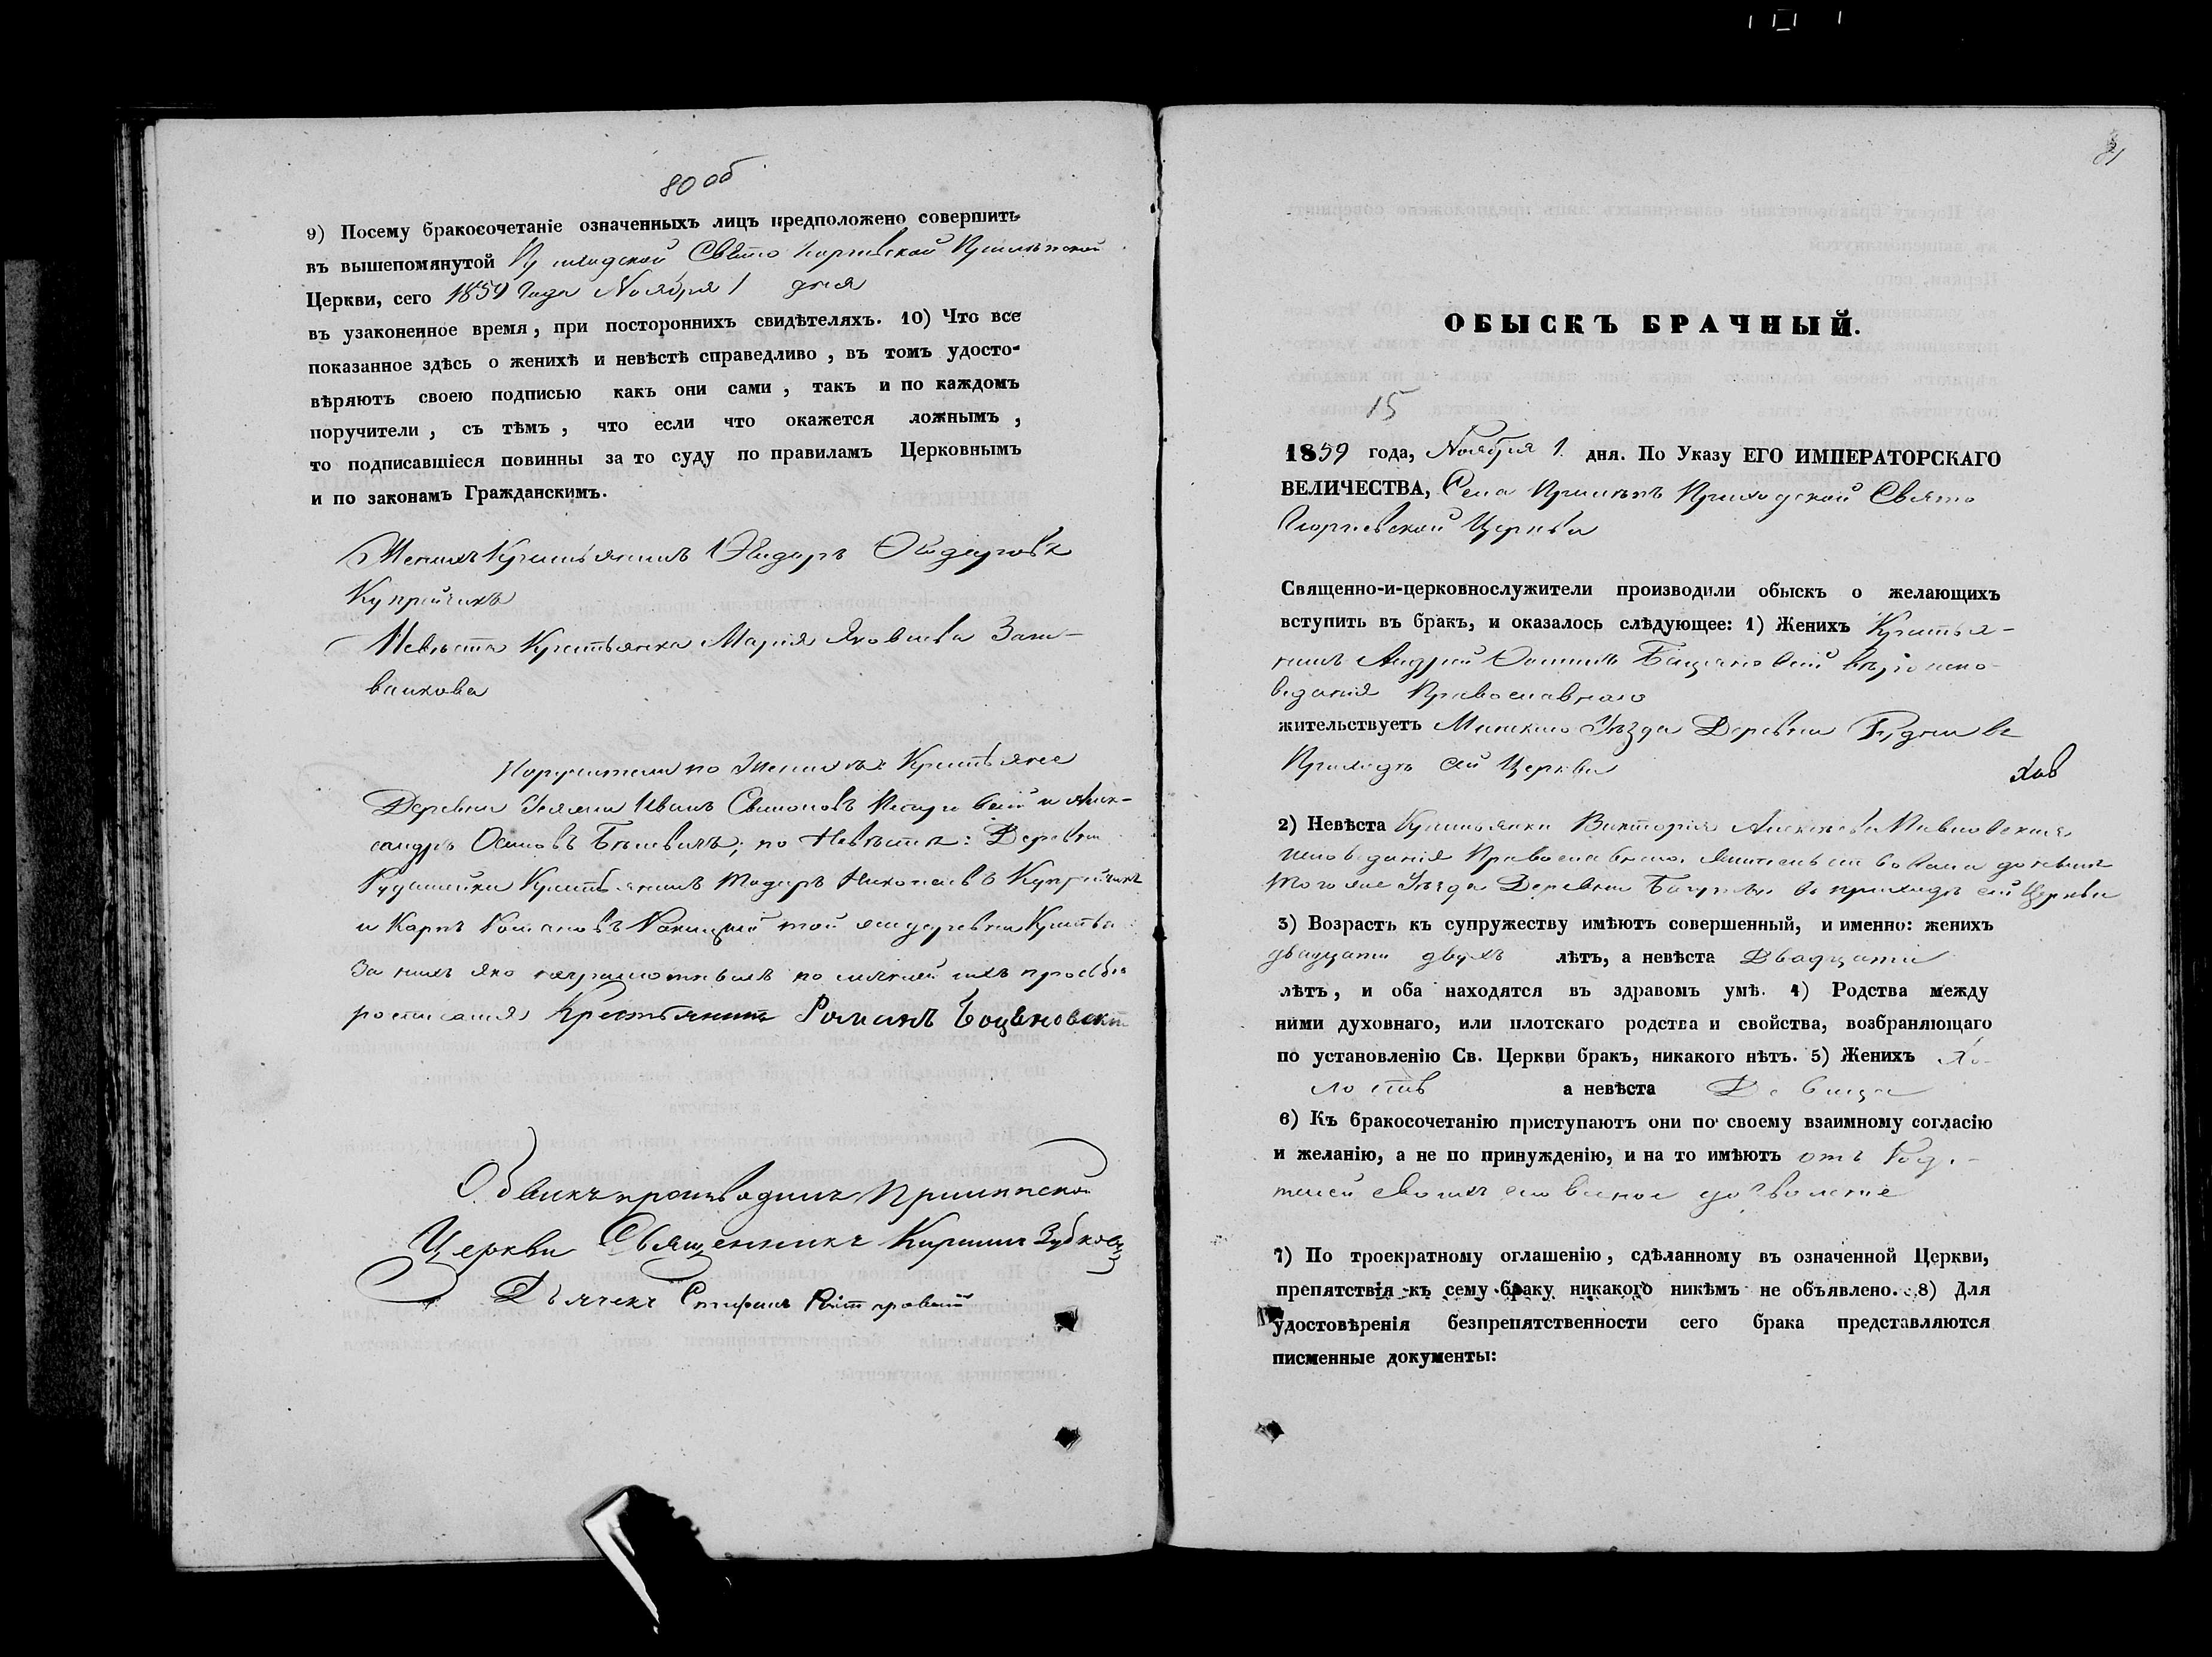 80 об
9) Посему бракосочетаніе означенныхъ лицъ предположено совершить
въ вышепомянутой Приходской Свято Георгіевской Прилѣпской
Церкви, сего 1859 Года Ноября 1 дня
въ узаконенное время, при постороннихъ свидѣтеляхъ. 10) Что все
показанное здѣсь о женихѣ и невѣстѣ справедливо, въ томъ удосто-
вѣряютъ своею подписью какъ они сами, такъ и по каждомъ
поручители, съ тѣмъ, что если что окажется ложнымъ,
то подписавшіеся повинны за то суду по правиламъ Церковнымъ
и по законамъ Гражданскимъ.
Женихъ Крестьянинъ
Купрейчикъ
Невѣста Крестьянка Марія Яковлева
Поручители по Женихѣ: Крестьяне
Деревни Иванъ и Алек-
сандръ по Невѣстѣ: Деревни
Крестьянинъ Тодоръ Николаевъ Купрейчикъ
и Карпъ той же деревни
За нихъ яко неграмотныхъ по личной ихъ прозьбѣ
росписался Крестьянинъ Романъ
Обыскъ производилъ Прилѣпской
Церкви Священникъ Кириллъ
Дьячекъ Стефанъ
81
ОБЫСКЪ БРАЧНЫЙ.
15
1859 года, Ноября 1. дня. По Указу ЕГО ИМПЕРАТОРСКАГО
ВЕЛИЧЕСТВА, Села Прилѣпъ Приходской Свято
Георгіевской Церкви
Священно-и-церковнослужители производили обыскъ о желающихъ
вступить въ бракъ, и оказалось слѣдующее: 1) Женихъ Крестья-
нинъ Андрей вѣроиспо-
веданія Православнаго
жительствуетъ Минскаго Уѣзда Деревни въ
Приходѣ сей Церкви
2) Невѣста Крестьянка Викторія
исповеданія Православнаго,
Того же Уѣзда Деревни въ приходѣ сей Церкви
3) Возрастъ къ супружеству имѣютъ совершенный, и именно: женихъ
двадцати двухъ лѣтъ, а невѣста Двадцати
лѣтъ, и оба находятся въ здравомъ умѣ. 4) Родства между
ними духовнаго, или плотскаго родства и свойства, возбраняющаго
по установленію Св. Церкви бракъ, никакого нѣтъ. 5) Женихъ Хо-
лостъ а невѣста Девица
6) Къ бракосочетанію приступаютъ они по своему взаимному согласію
и желанію, а не по принужденію, и на то имѣютъ отъ Роди-
телей своихъ словесное дозволеніе
7) По троекратному оглашенію, сдѣланному въ означенной Церкви,
препятствія къ сему браку никакого никѣмъ не объявлено. 8) Для
удостовѣренія безпрепятственности сего брака представляются
писменные документы: